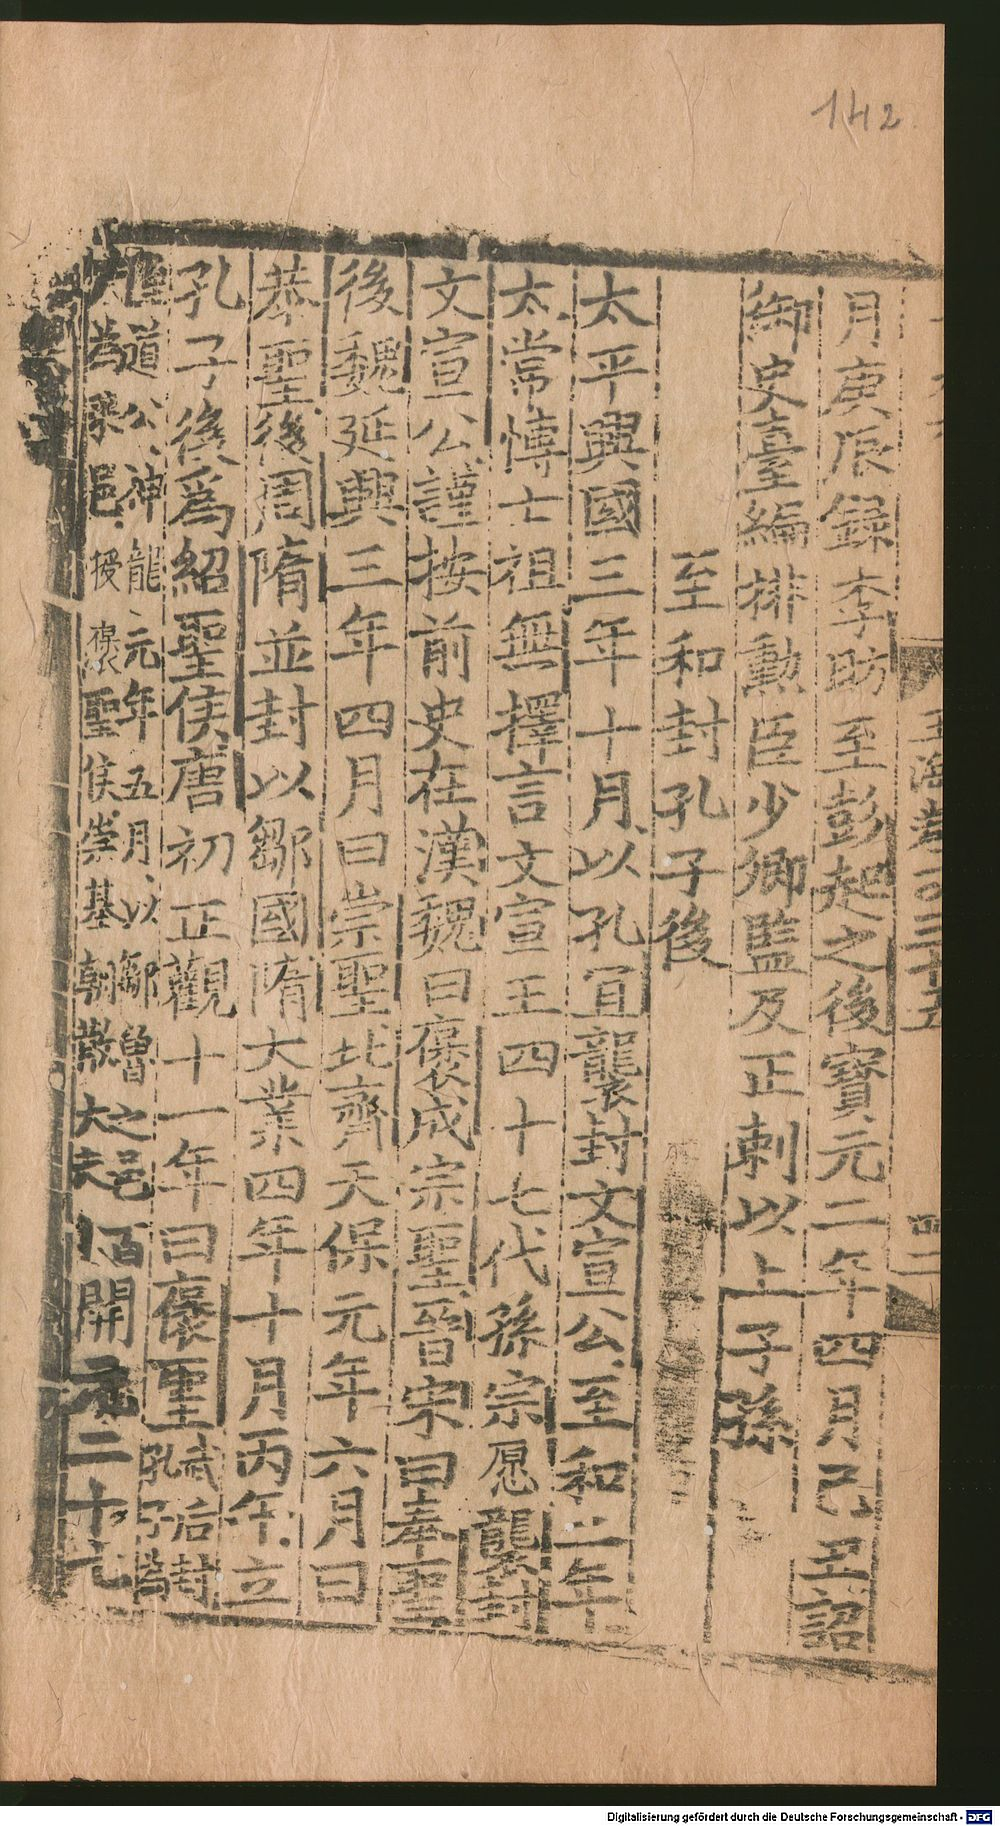 142
玉海卷一百三十五
月庚辰録李昉至彭起之後寶元二年四月己丑詔
御史臺編排勲臣少卿監及正刺以上子孫
至和封孔子後
太平興國三年十月以孔宜襲封文宣公至和二年
太常博士祖無擇言文宣王四十七代孫宗愿襲封
文宣公謹按前史在漢魏曰褒成宗聖晉宋曰奉聖
後魏延興三年四月曰崇聖北齊天保元年六月曰
恭聖後周隋並封以鄒國隋大業四年十月丙午立
孔子後爲紹聖侯唐初正觀十一年曰褒聖
武后封孔子爲
隆道公神龍元年五月以鄒魯之邑百
爲采邑授褒聖侯崇基朝散大夫
開元二十七
Digitalisierung gefördert durch die Deutsche Forschungsgemeinschaft - DFG